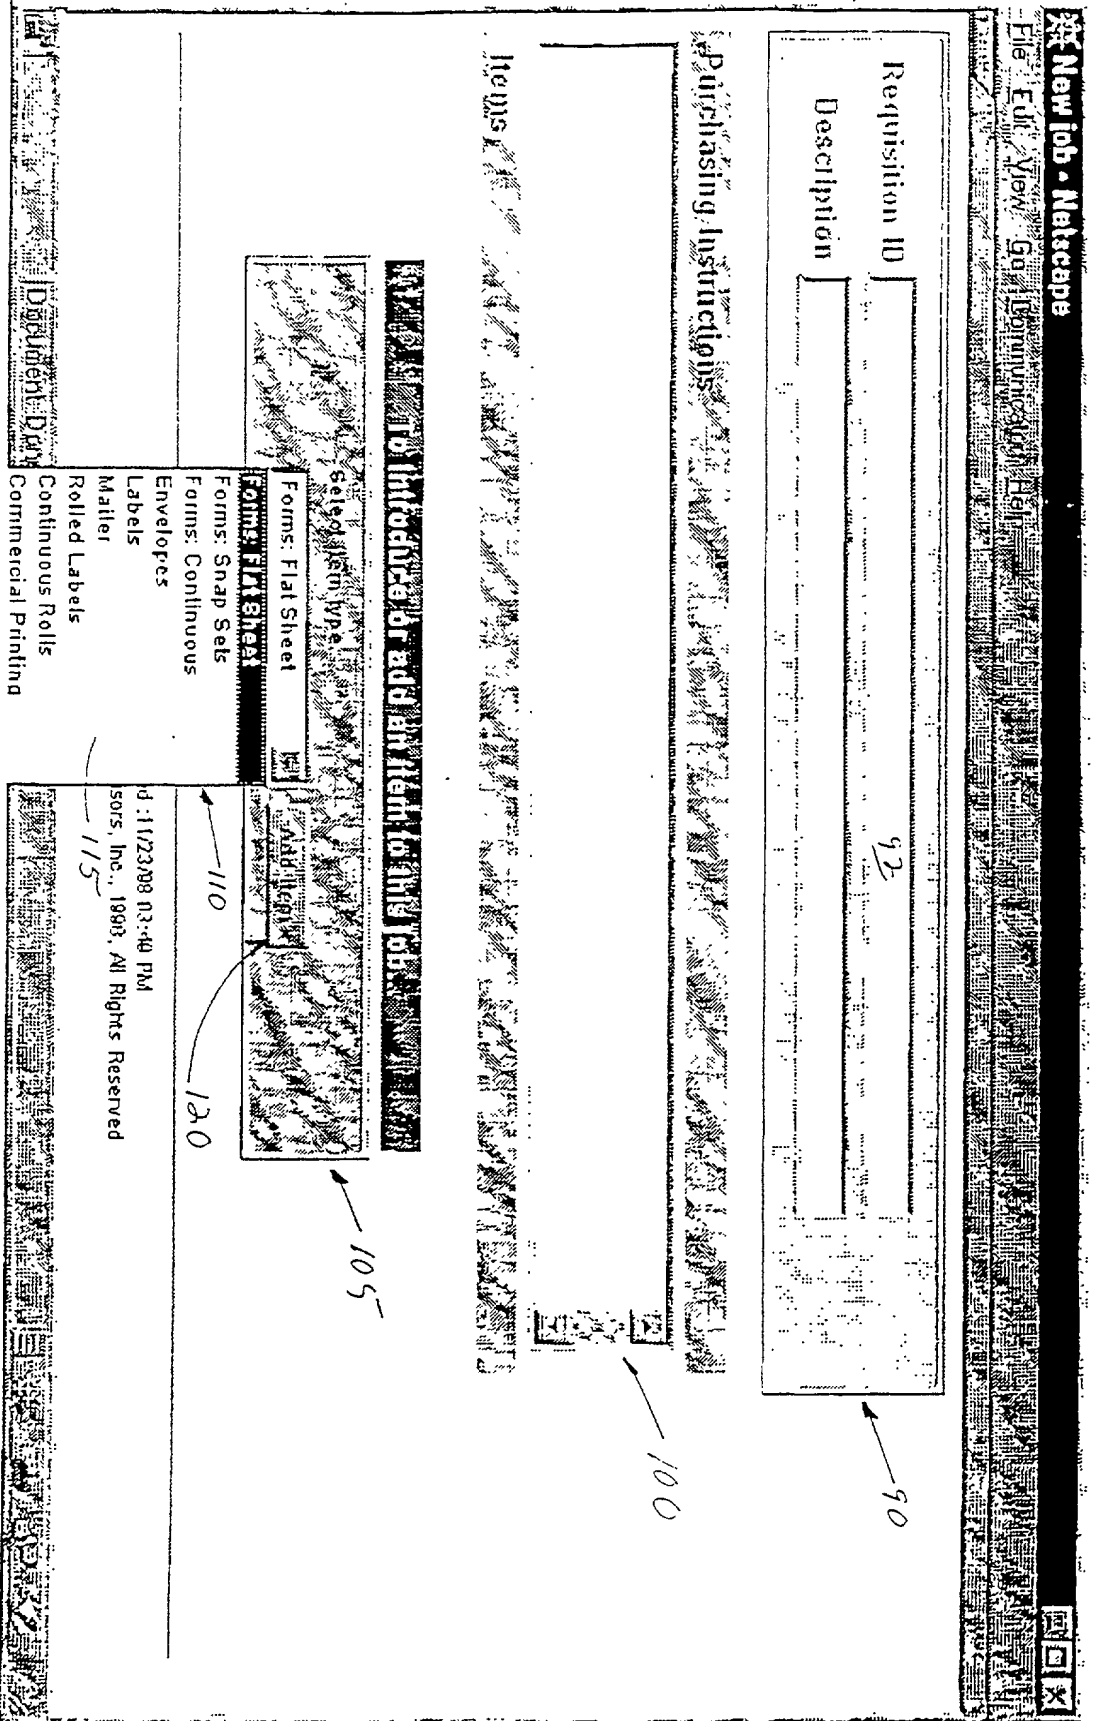 New job - Netscape
File Edit View Go Communicator Help
Requisition ID
92
Description
90
Purchasing Instructions
100
Items
To introduce or add an item to this job
105
Select item type
Forms: Flat Sheet
Add Item
Forms: Flat Sheet
Forms: Snap Sets
Forms: Continuous
Envelopes
Labels
Mailer
Rolled Labels
Continuous Rolls
Commercial Printing
110
120
115
d :11/23/98 03:40 PM
sors, Inc., 1998, All Rights Reserved
Document: Don